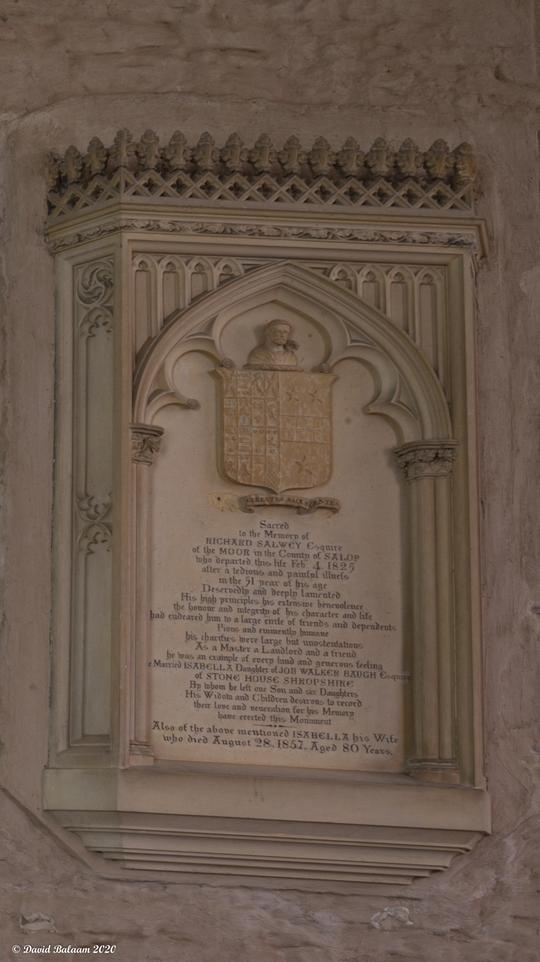 Sacred
to the Memory of
RICHARD SALWEY Esquire
of the MOOR in the County of SALOP
who departed this life Feb 4. 1825
after a tedious and painful illness
in the 51 year of his age
Deservedly and deeply lamented
His high principles his extensive benevolence
the honour and integrity of his character and life
had endeared him to a large circle of friends and dependents
Pious and eminently humane
his charities were large but unostentatious
As a Master a Landlord and a friend
he was an example of every kind and generous feeling
e Married ISABELLA Daughter of JOB WALKER BAUGH Esquire
of STONE HOUSE SHROPSHIRE
By whom he left one Son and six Daughters
His Widow and Children desirous to record
their love and veneration for his Memory
have erected this Monument
Also of the above mentioned ISABELLA his Wife
who died August 28. 1857. Aged 80 Years.
© David Balaam 2020